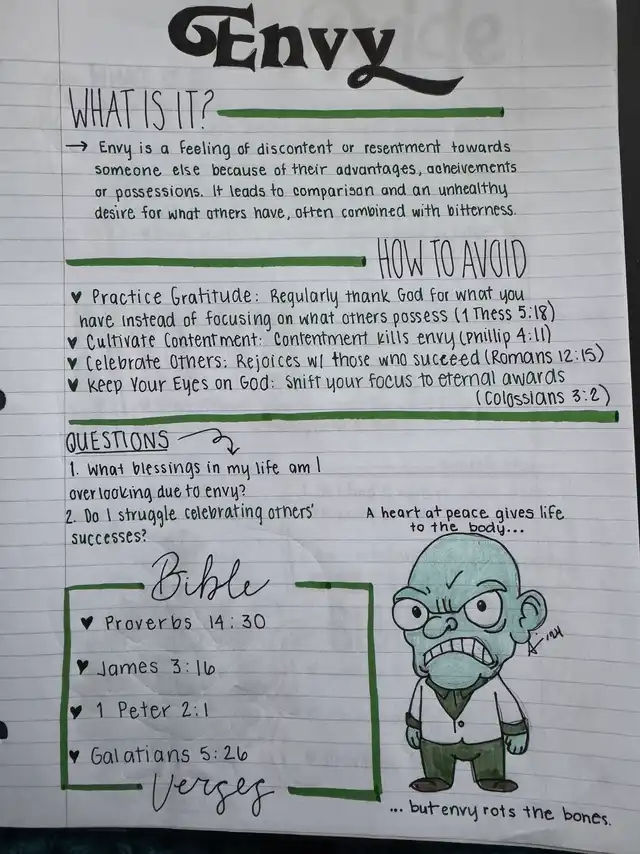 Envy
WHAT IS IT?
→ Envy is a feeling of discontent or resentment towards
someone else because of their advantages, acheivements
or possessions. It leads to comparison and an unhealthy
desire for what others have, often combined with bitterness.
HOW TO AVOID
♥ Practice Gratitude: Regularly thank God for what you
have instead of focusing on what others possess (1 Thess 5:18)
♥ Cultivate Contentment: Contentment kills envy (Phillip 4:11)
♥ Celebrate Others: Rejoices w/ those who succeed (Romans 12:15)
♥ Keep Your Eyes on God: Shift your focus to eternal awards
(Colossians 3:2)
QUESTIONS
1. What blessings in my life am I
overlooking due to envy?
2. Do I struggle celebrating others'
successes?
Bible
♥ Proverbs 14:30
♥ James 3:16
♥ 1 Peter 2:1
♥ Galatians 5:26
Verses
A heart at peace gives life
to the body...
... but envy rots the bones.